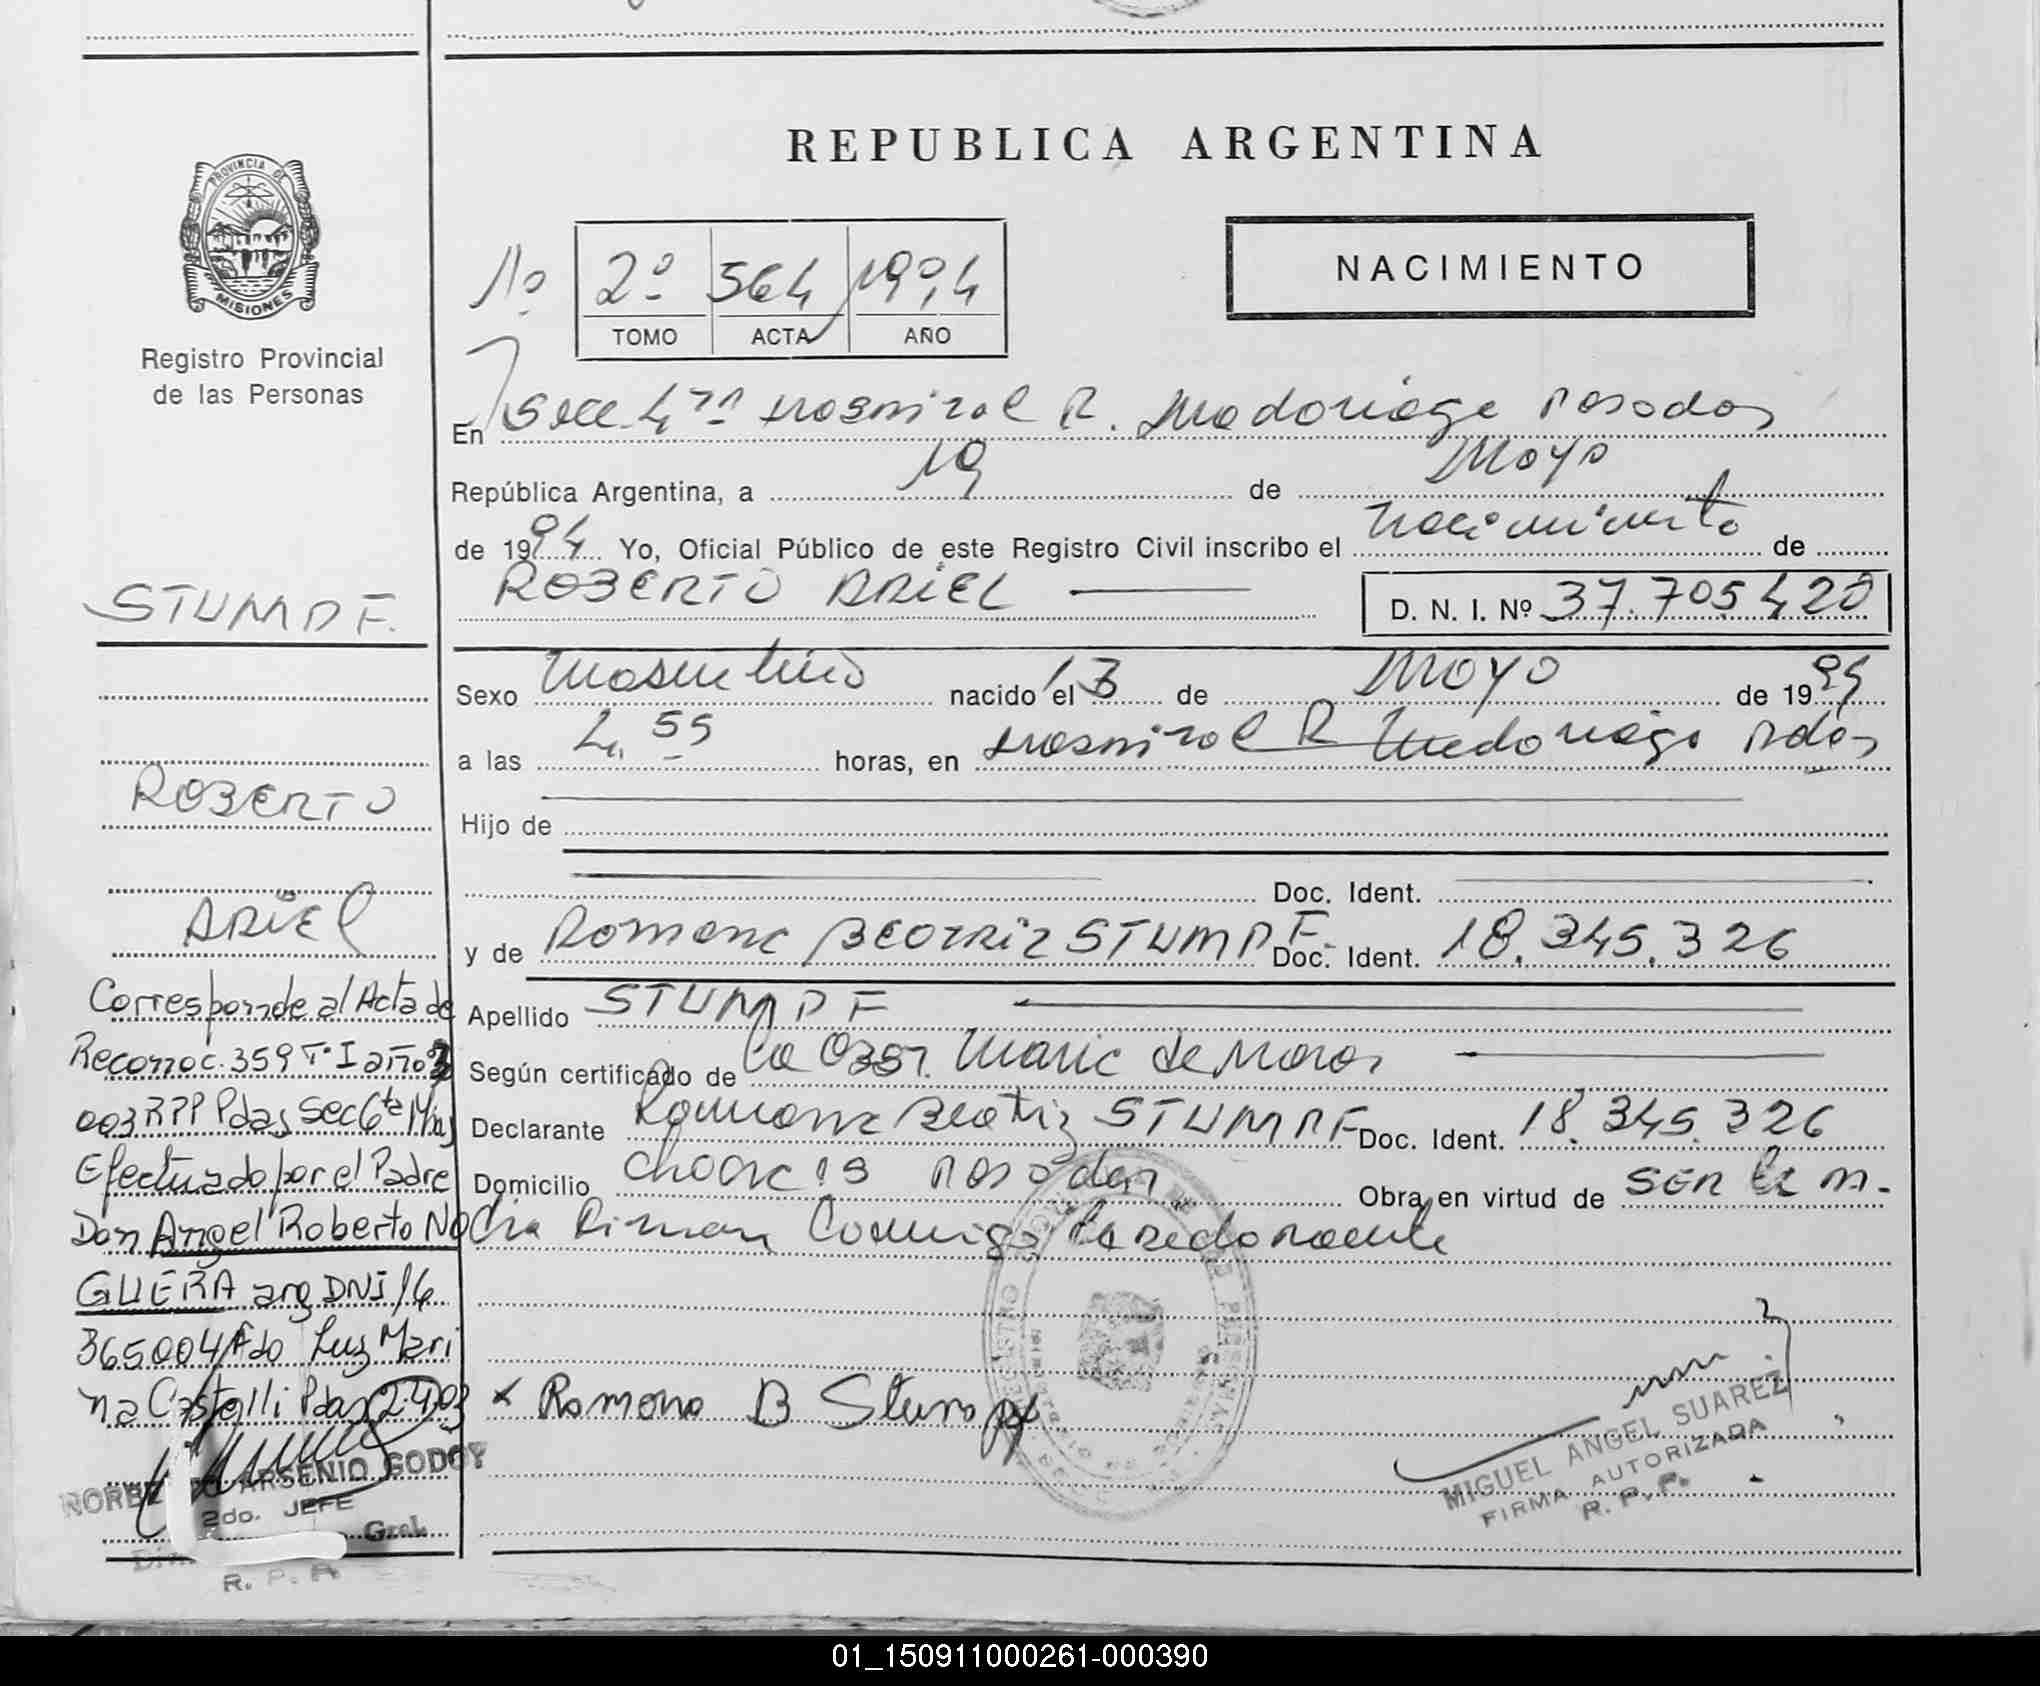 REPUBLICA ARGENTINA
PROVINCIA DE
MISIONES
Registro Provincial
de las Personas
Nº 2º 564 1994
TOMO ACTA AÑO
NACIMIENTO
En Secc 4ta Hospital R. Madariaga Posadas
República Argentina, a 19 de Mayo
de 1994 Yo, Oficial Público de este Registro Civil inscribo el nacimiento de
ROBERTO ARIEL D. N. I. Nº 37.705.420
STUMPF.
Sexo Masculino nacido el 13 de Mayo de 1994
a las 4.55 horas, en Hospital R Madariaga Pdas
ROBERTO
Hijo de
Doc. Ident.
ARIEL
y de Romana Beatriz STUMPF Doc. Ident. 18.345.326
Apellido STUMPF
Según certificado de la Obst. Maria de
Declarante Beatriz STUMPF Doc. Ident. 18.345.326
Domicilio Posadas Obra en virtud de SER la M.
dre
Corresponde al Acta de
Reconoc. 359 Tº I año 2
003 RPP Pdas Sec 6ta Mnes
Efectuado por el Padre
Don Angel Roberto NO
GUERA arg DNI 16
365004 Fdo Luz Mari
na Castelli Pdas 2.4.03
ARSENIO GODOY
2do. JEFE
Gral.
R. P. P.
x Romona B Stumpf
MIGUEL ANGEL SUAREZ
FIRMA AUTORIZADA
R. P. P.
01_150911000261-000390